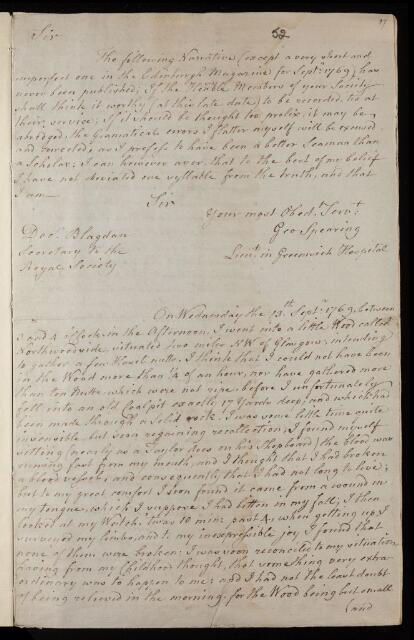 17
59
Sir
The following Narrative (except a very short and
imperfect one in the Edinburgh Magazine for Septr. 1769) has
never been published; If the Honble Members of your Society
shall think it worthy (at this late date) to be recorded, tis at
their service; If it should be thought too prolix, it may be
abridged, the Gramatical errors I flatter myself will be excused
and corrected, as I profess to have been a better Seaman than
a Scholar; I can however aver, that to the best of my belief
I have not deviated one syllable from the truth, and that
I am—
Sir
Your most Obedt. Servt.
Geo Spearing
Lieut. in Greenwich Hospital
Docr. Blagdan
Secretary to the
Royal Society
On Wednesday the 13th. Septr. 1769, between
3 and 4 o'Clock in the Afternoon, I went into a little Wood called
Northwoodside, situated two miles NW of Glasgow, intending
to gather a few Hazel nutts. I think that I could not have been
in the Wood more than ¼ of an hour, nor have gathered more
than ten Nutts which were not ripe before I unfortunately
fell into an old Coalpit exactly 17 Yards deep, and which had
been made through a Solid rock. I was some little time quite
insensible but soon regaining recollection, I found myself
sitting (nearly as a Taylor does on his Shopboard) the blood was
running fast from my mouth, and I thought that I had broken
a blood vessel, and consequently that I had not long to live;
but to my great comfort I soon found it came from a wound in
my tongue, which I suppose I had bitten in my fall, I then
looked at my Watch, twas 10 min. past 4, when getting up I
surveyed my limbs, and to my inexpressible joy I found that
none of them were broken; I was soon reconciled to my situation
having from my Childhood thought, that something very extra-
ordinary was to happen to me; and I had not the least doubt
of being relieved in the morning, for the Wood being but small
(and